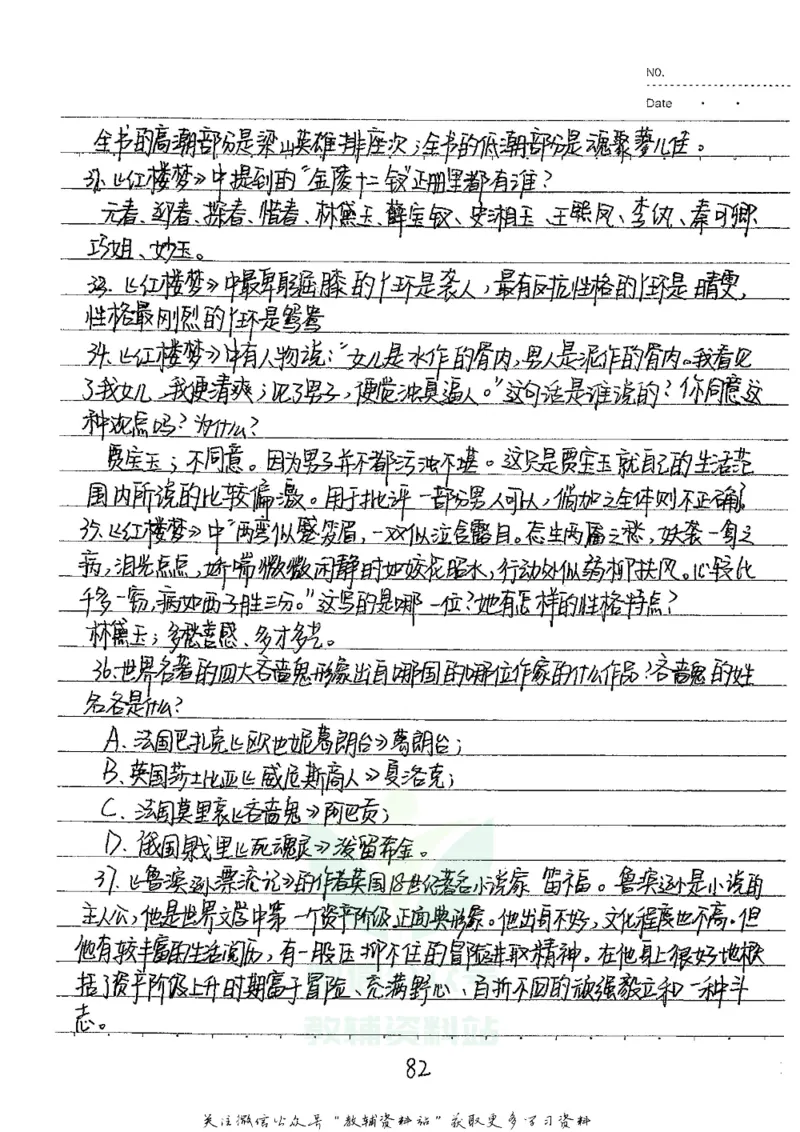 NO.
Date
全书的高潮部分是梁山英雄排座次；全书的低潮部分是魂聚蓼儿洼。
31.《红楼梦》中提到的“金陵十二钗”正册里都有谁？
元春、迎春、探春、惜春、林黛玉、薛宝钗、史湘玉、王熙凤、李纨、秦可卿、
巧姐、妙玉。
33.《红楼梦》中最卑躬屈膝的丫环是袭人，最有反抗性格的丫环是晴雯，
性格最刚烈的丫环是鸳鸯
34.《红楼梦》中有人物说：“女儿是水作的骨肉，男人是泥作的骨肉。我看见
了我女儿，我便清爽；见了男子，便觉浊臭逼人。”这句话是谁说的？你同意这
种观点吗？为什么？
贾宝玉；不同意。因为男子并不都污浊不堪。这只是贾宝玉就自己的生活范
围内所说的比较偏激。用于批评一部分男人可以，倘加之全体则不正确。
35.《红楼梦》中“两弯似蹙笼眉，一双似泣含露目。态生两靥之愁，娇袭一身之
病，泪光点点，娇喘微微闲静时如姣花照水，行动处似弱柳扶风。心较比
干多一窍，病如西子胜三分。”这写的是哪一位？她有怎样的性格特点？
林黛玉；多愁善感、多才多艺。
36.世界名著的四大吝啬鬼形象出自哪国的哪位作家的什么作品？吝啬鬼的姓
名各是什么？
A.法国巴扎克《欧也妮葛朗台》葛朗台；
B.英国莎士比亚《威尼斯商人》夏洛克；
C.法国莫里哀《吝啬鬼》阿巴贡；
D.俄国果戈里《死魂灵》泼留希金。
37.《鲁滨逊漂流记》的作者英国18世纪著名小说家 笛福。鲁滨逊是小说的
主人公，他是世界文学中第一个资产阶级正面典形象。他出身不好，文化程度也不高。但
他有较丰富的生活阅历，有一股压抑不住的冒险进取精神。在他身上很好地概
括了资产阶级上升时期富于冒险、充满野心、百折不回的顽强毅立和一种斗
志。
教辅资料站
82
关注微信公众号“教辅资料站”获取更多学习资料